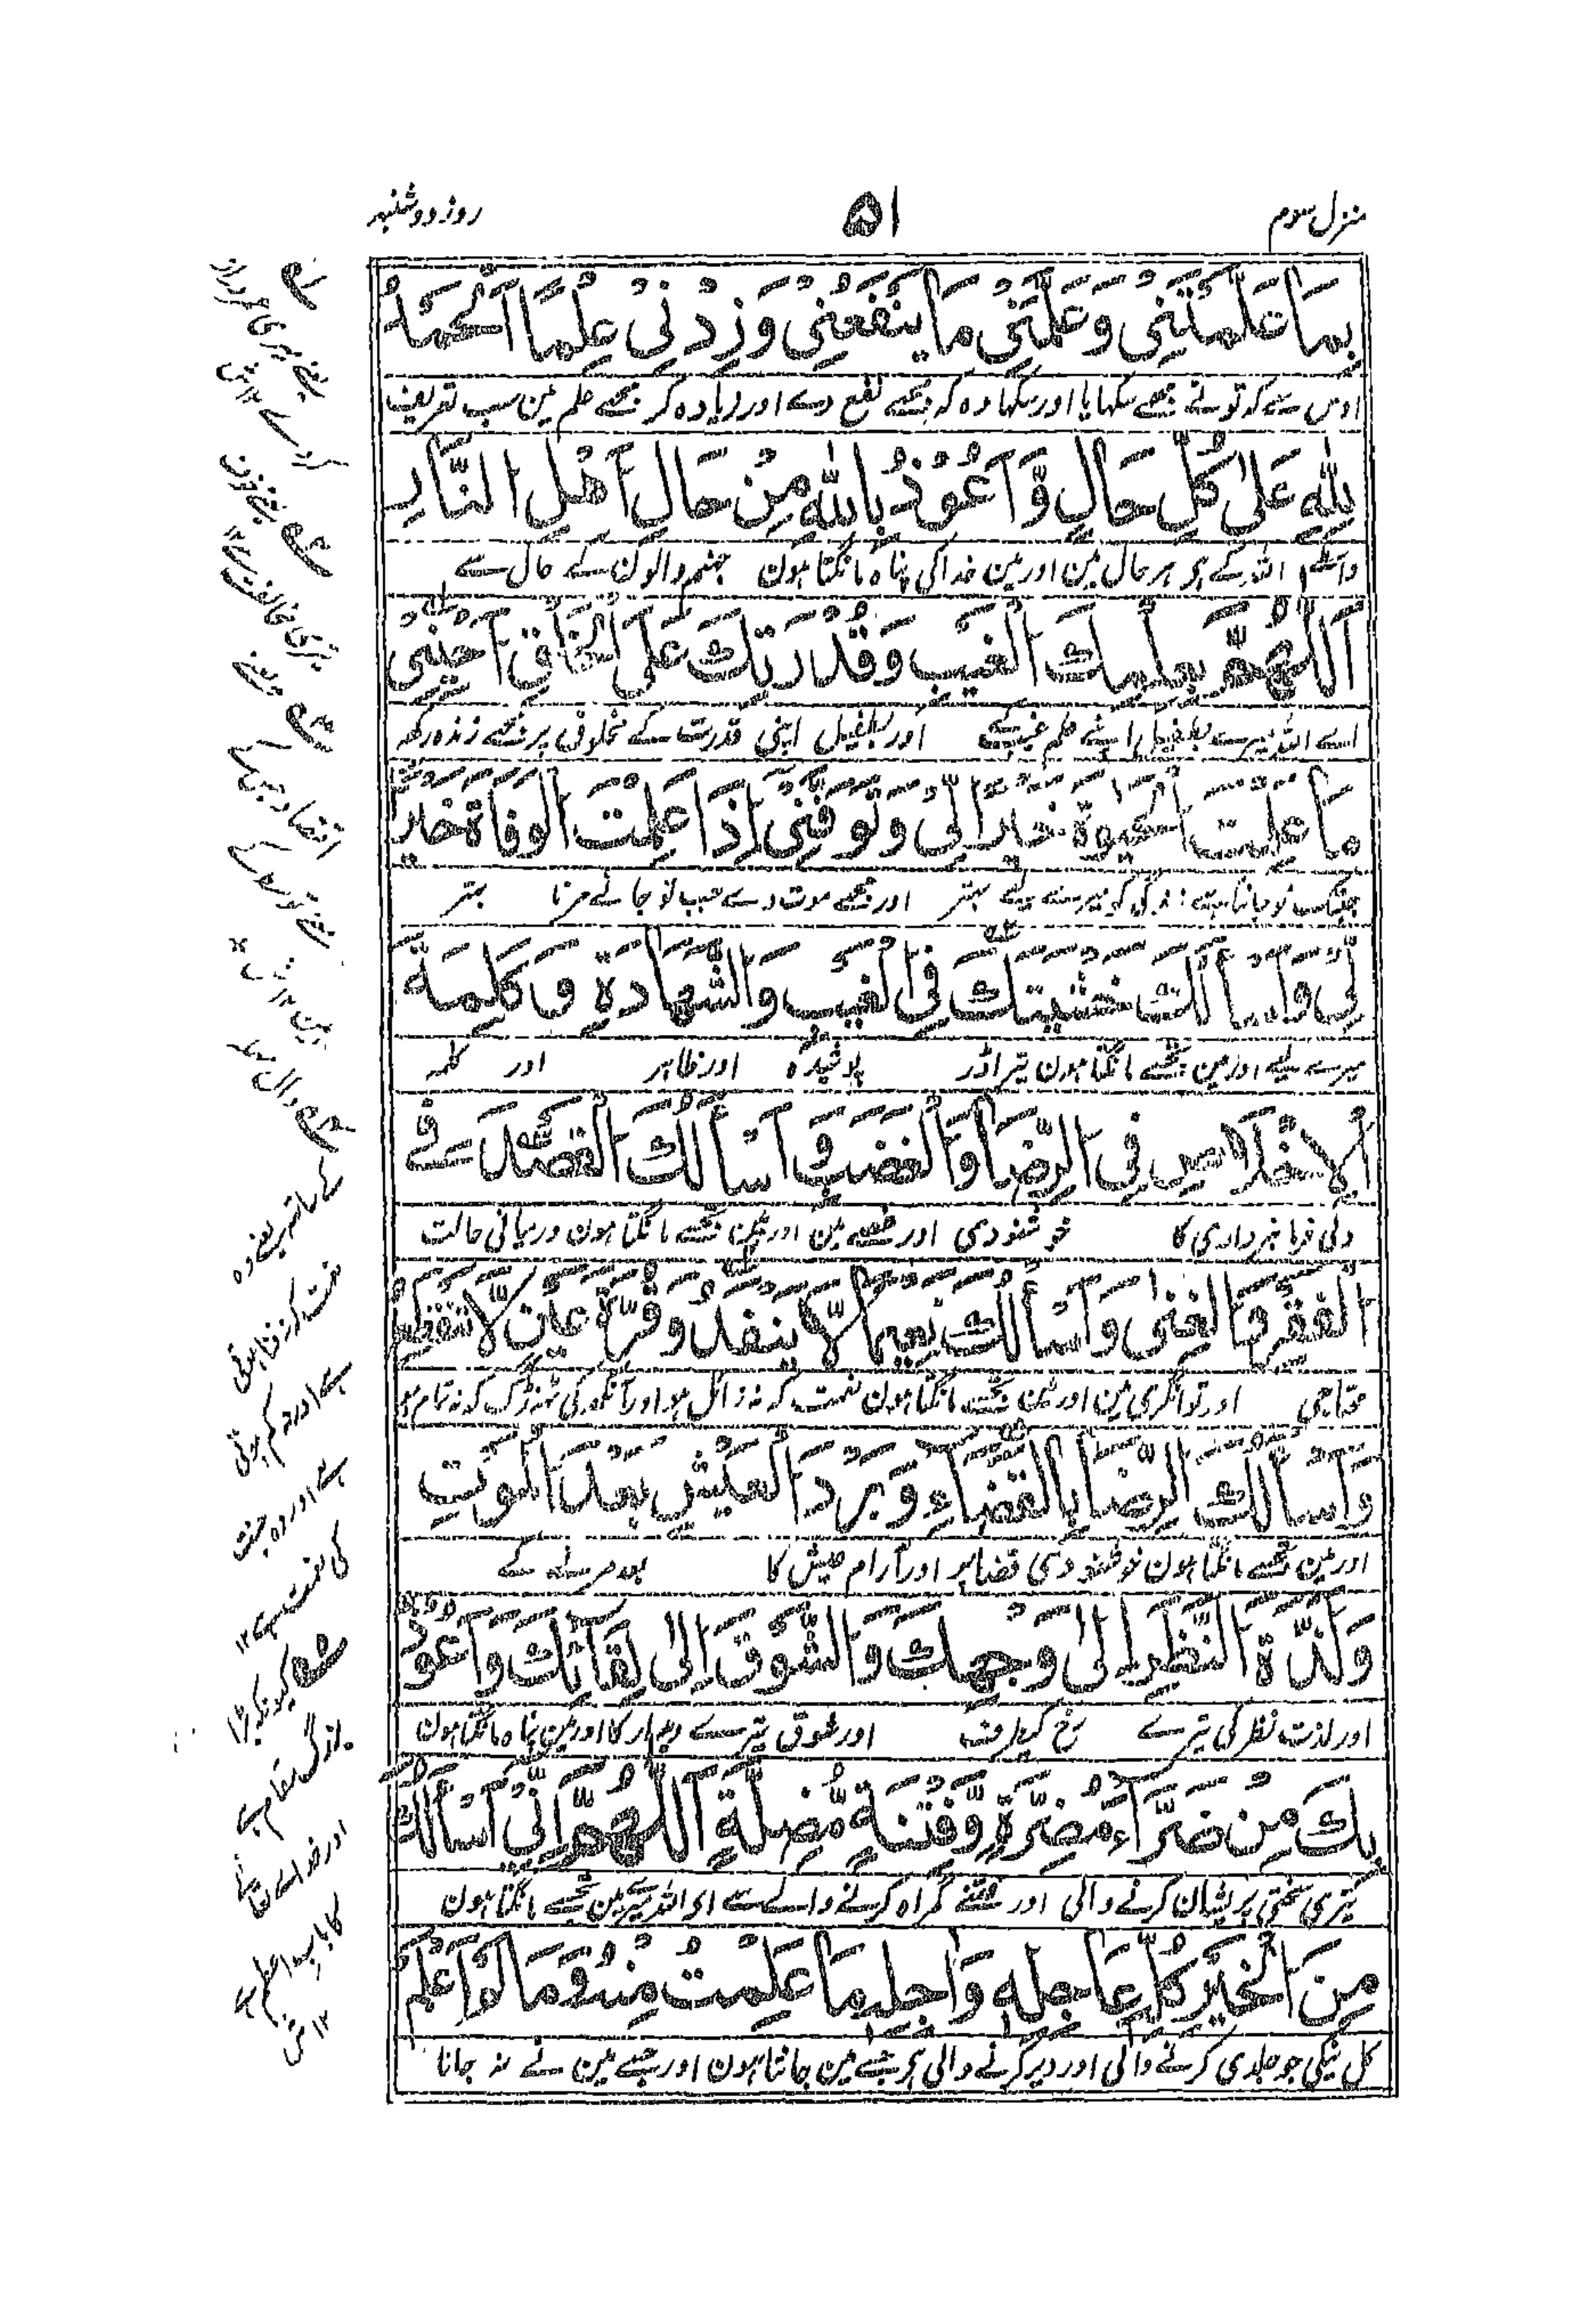 منزل سوم
۵۱
روز دوشنبہ
بِمَا عَلَّمْتَنِیْ وَعَلِّمْنِیْ مَا یَنْفَعُنِیْ وَزِدْنِیْ عِلْمًا اَلْحَمْدُ
اوس سے کہ تونے مجھے سکھایا اور سکھا وہ کہ مجھے نفع دے اور زیادہ کر مجھے علم مین سب تعریف
لِلّٰہِ عَلٰی کُلِّ حَالٍ وَّاَعُوْذُ بِاللّٰہِ مِنْ حَالِ اَھْلِ النَّارِ
واسطے اللہ کے ہو ہر حال مین اور مین خدا کی پناہ مانگتا ہون جہنم والون کے حال سے
اَللّٰھُمَّ بِعِلْمِكَ الْغَیْبَ وَقُدْرَتِكَ عَلَی الْخَلْقِ اَحْیِنِیْ
اے اللہ میرے بطفیل اپنے علم غیب کے اور بطفیل اپنی قدرت کے مخلوق پر مجھے زندہ رکھ
مَا عَلِمْتَ الْحَیٰوۃَ خَیْرًا لِّیْ وَتَوَفَّنِیْ اِذَا عَلِمْتَ الْوَفَاۃَ خَیْرًا
کو میرے لیے بہتر اور مجھے موت دے جب تو جانے مرنا بہتر
لِّیْ وَاَسْأَلُكَ خَشْیَتَكَ فِی الْغَیْبِ وَالشَّھَادَۃِ وَکَلِمَۃَ
میرے لیے اور مین تجھسے مانگتا ہون تیرا ڈر پوشیدہ اور ظاہر اور کلمہ
الْاِخْلَاصِ فِی الرِّضَا وَالْغَضَبِ وَاَسْأَلُكَ الْقَصْدَ فِی
دلی فرمانبرداری کا خوشنودی اور غصے مین اور مین تجھسے مانگتا ہون درمیانی حالت
الْفَقْرِ وَالْغِنٰی وَاَسْأَلُكَ نَعِیْمًا لَّا یَنْفَدُ وَقُرَّۃَ عَیْنٍ لَّا تَنْقَطِعُ
محتاجی اور توانگری مین اور مین تجھسے مانگتا ہون نعمت کہ نہ زائل ہو اور آنکھ کی ٹھنڈک کہ نہ تمام ہو
وَاَسْأَلُكَ الرِّضَا بِالْقَضَاءِ وَبَرْدَ الْعَیْشِ بَعْدَ الْمَوْتِ
اور مین تجھسے مانگتا ہون خوشنودی قضا پر اور آرام عیش کا بعد مرنے کے
وَلَذَّۃَ النَّظَرِ اِلٰی وَجْھِكَ وَالشَّوْقَ اِلٰی لِقَائِكَ وَاَعُوْذُ
اور لذت نظر کی تیرے رخ کیطرف اور شوق تیرے دیدار کا اور مین پناہ مانگتا ہون
بِكَ مِنْ ضَرَّاءَ مُضِرَّۃٍ وَّفِتْنَۃٍ مُّضِلَّۃٍ اَللّٰھُمَّ اِنِّیْ اَسْأَلُكَ
تیری سختی پریشان کرنے والی اور فتنے گمراہ کرنے والے سے اے اللہ میرے مین تجھسے مانگتا ہون
مِنَ الْخَیْرِ کُلِّہٖ عَاجِلِہٖ وَاٰجِلِہٖ مَا عَلِمْتُ مِنْہُ وَمَا لَمْ اَعْلَمْ
کل نیکی جو جلدی کرنے والی اور دیر کرنے والی ہو جسے مین جانتا ہون اور جسے مین نے نہ جانا
کے ساتھ یعنے وہ
نعمت کہ نہ فنا ہوتی
ہے اور نہ کم ہوتی
ہے اور وہ جنت
کی نعمت ہے ۱۲
کیونکہ بڑا
بزرگ مقام ہے